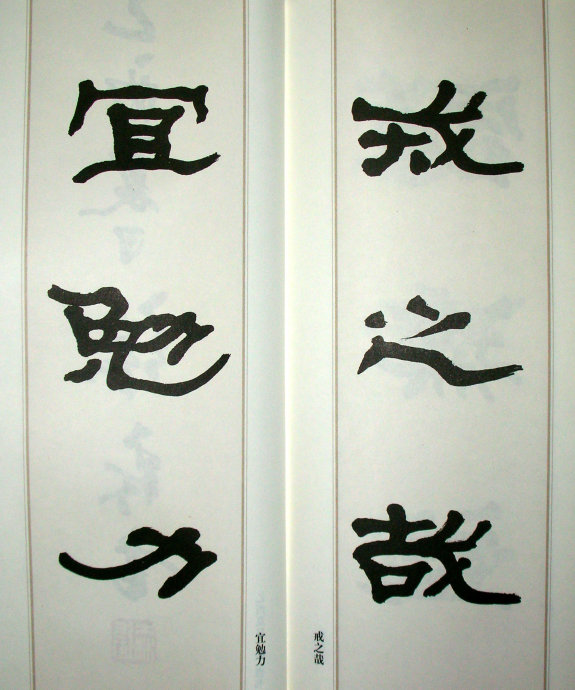 戒之哉
宜勉力
戒之哉
宜勉力